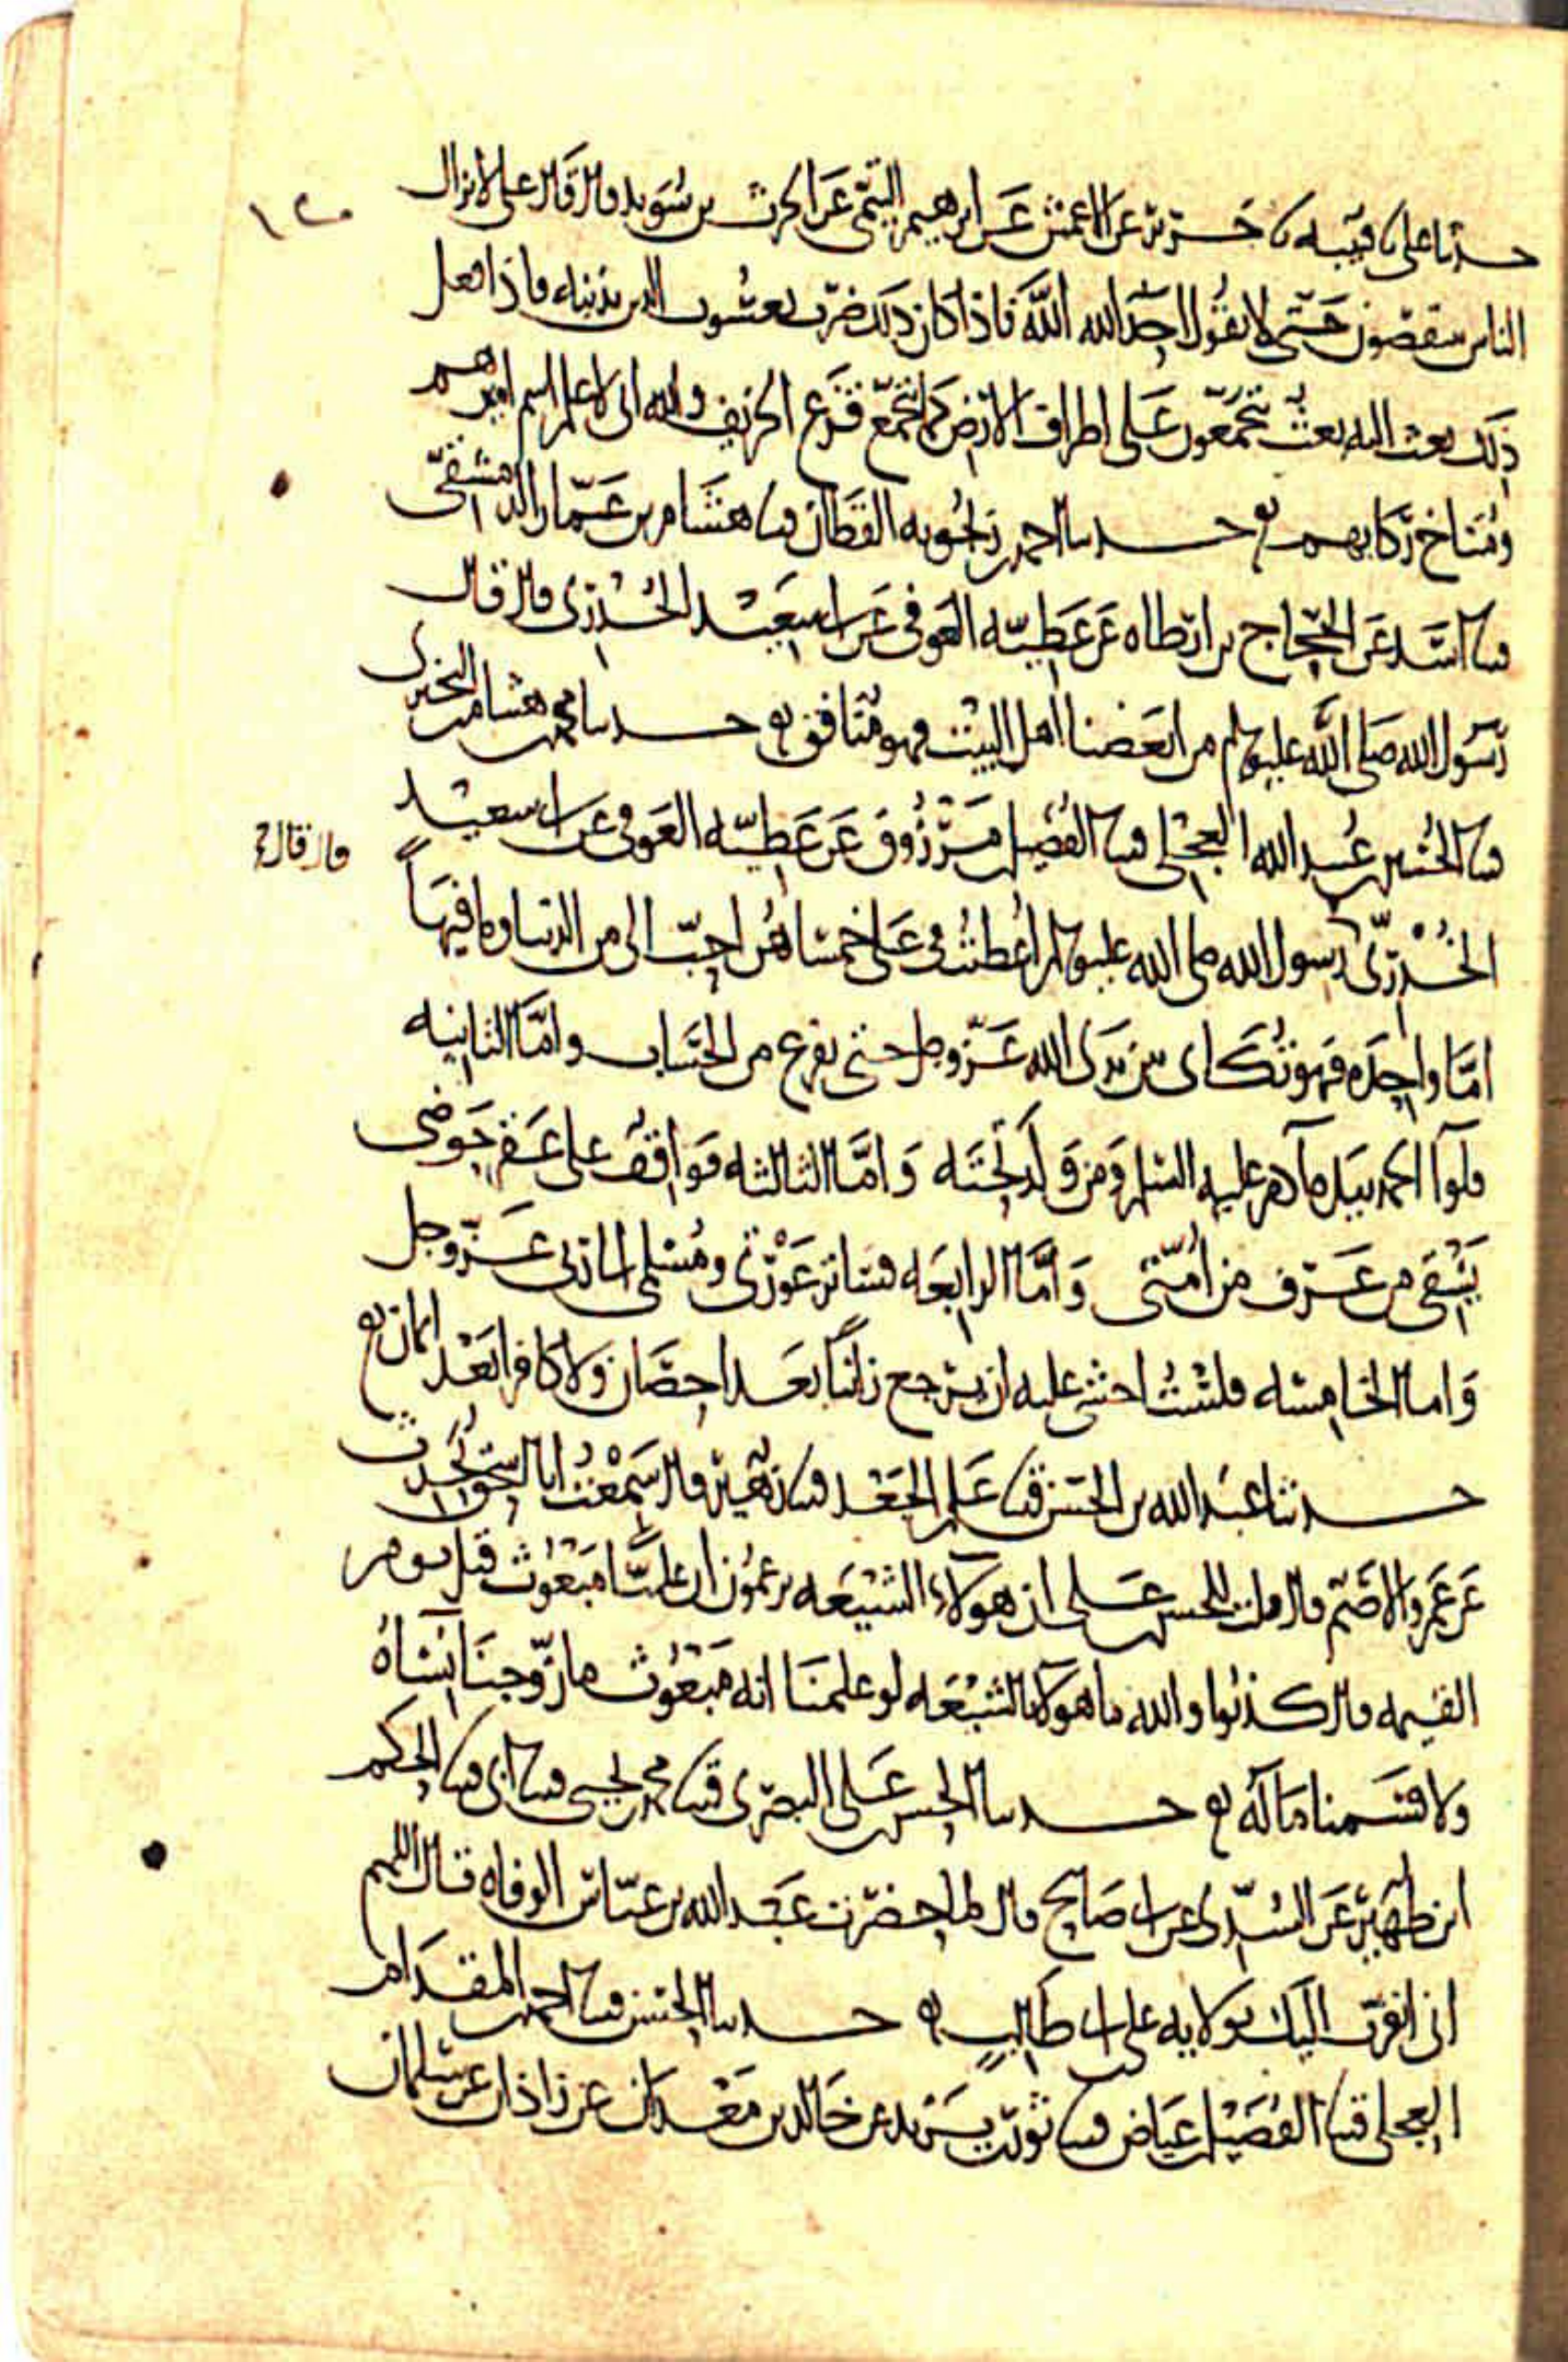 حدثنا علي نا قتيبة نا جرير عن الاعمش عن ابرهيم التيمي عن الحرث بن سويد قال قال علي لا يزال
الناس ينقصون حتى لا يقول احد الله الله فاذا كان ذلك ضرب يعسوب الدين بذنبه فاذا فعل
ذلك بعث اليه بعث يتجمعون على اطراف الارض كما تجمع قزع الخريف والله اني لاعلم اسم اميرهم
ومناخ ركابهم حدثنا احمد بن زنجويه القطان قثنا هشام بن عمار الدمشقي
قثنا اسد عن الحجاج بن ارطاه عن عطيه العوفي عن ابي سعيد الخدري قال قال
رسول الله صلى الله عليه وسلم من ابغضنا اهل البيت فهو منافق حدثنا محمد بن هشام بن البختري
قثنا الحسين بن عبيد الله العجلي قثنا الفضيل بن مرزوق عن عطيه العوفي عن ابي سعيد
الخدري رسول الله صلى الله عليه وسلم اعطيت في علي خمسا هن احب الي من الدنيا وما فيها
قال قال
اما واحده فهو تكاي بين يدي الله عز وجل حتى يفرغ من الحساب واما الثانيه
فلوآ الحمد بيده آدم عليه السلم ومن ولد تحته واما الثالثه فواقف على عقر حوضي
يسقي من عرف من امتي واما الرابعه فساتر عورتي ومسلمي الى ربي عز وجل
واما الخامسه فلست اخشى عليه ان يرجع زانيا بعد احصان ولا كافرا بعد ايمان
حدثنا عبد الله بن الحسن قثنا علي بن الجعد قثنا زهير قال سمعت ابا اسحق يحدث
عن عمرو الاصم قال قلت للحسن بن علي ان هولاء الشيعه يزعمون ان عليا مبعوث قبل يوم
القيمه قال كذبوا والله ما هولا بالشيعه لو علمنا انه مبعوث ما زوجنا نساه
ولا قسمنا ماله حدثنا الحسن بن علي البصري قثنا محمد بن يحيى قثنا ابي قثنا الحكم
ابن ظهير عن السدي عن ابي صالح قال لما حضرت عبد الله بن عباس الوفاه قال اللهم
اني اتقرب اليك بولايه علي بن ابي طالب حدثنا الحسن قثنا احمد بن المقدام
العجلي قثنا الفضيل بن عياض قثنا ثور بن يزيد عن خالد بن معدان عن زاذان عن سلمان